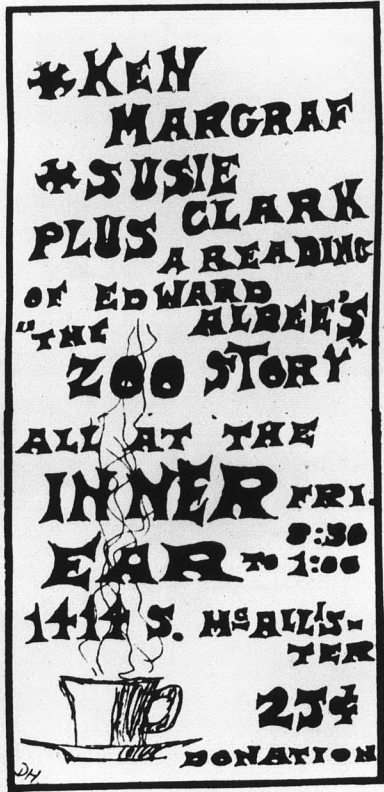 *KEN
MARGRAF
*SUSIE
CLARK
PLUS A READING
OF EDWARD
ALBEE'S
"THE
ZOO STORY"
ALL AT THE
INNER FRI.
EAR 8:30
TO 1:00
1414 S. McALLIS-
TER
25¢
DONATION
DH.